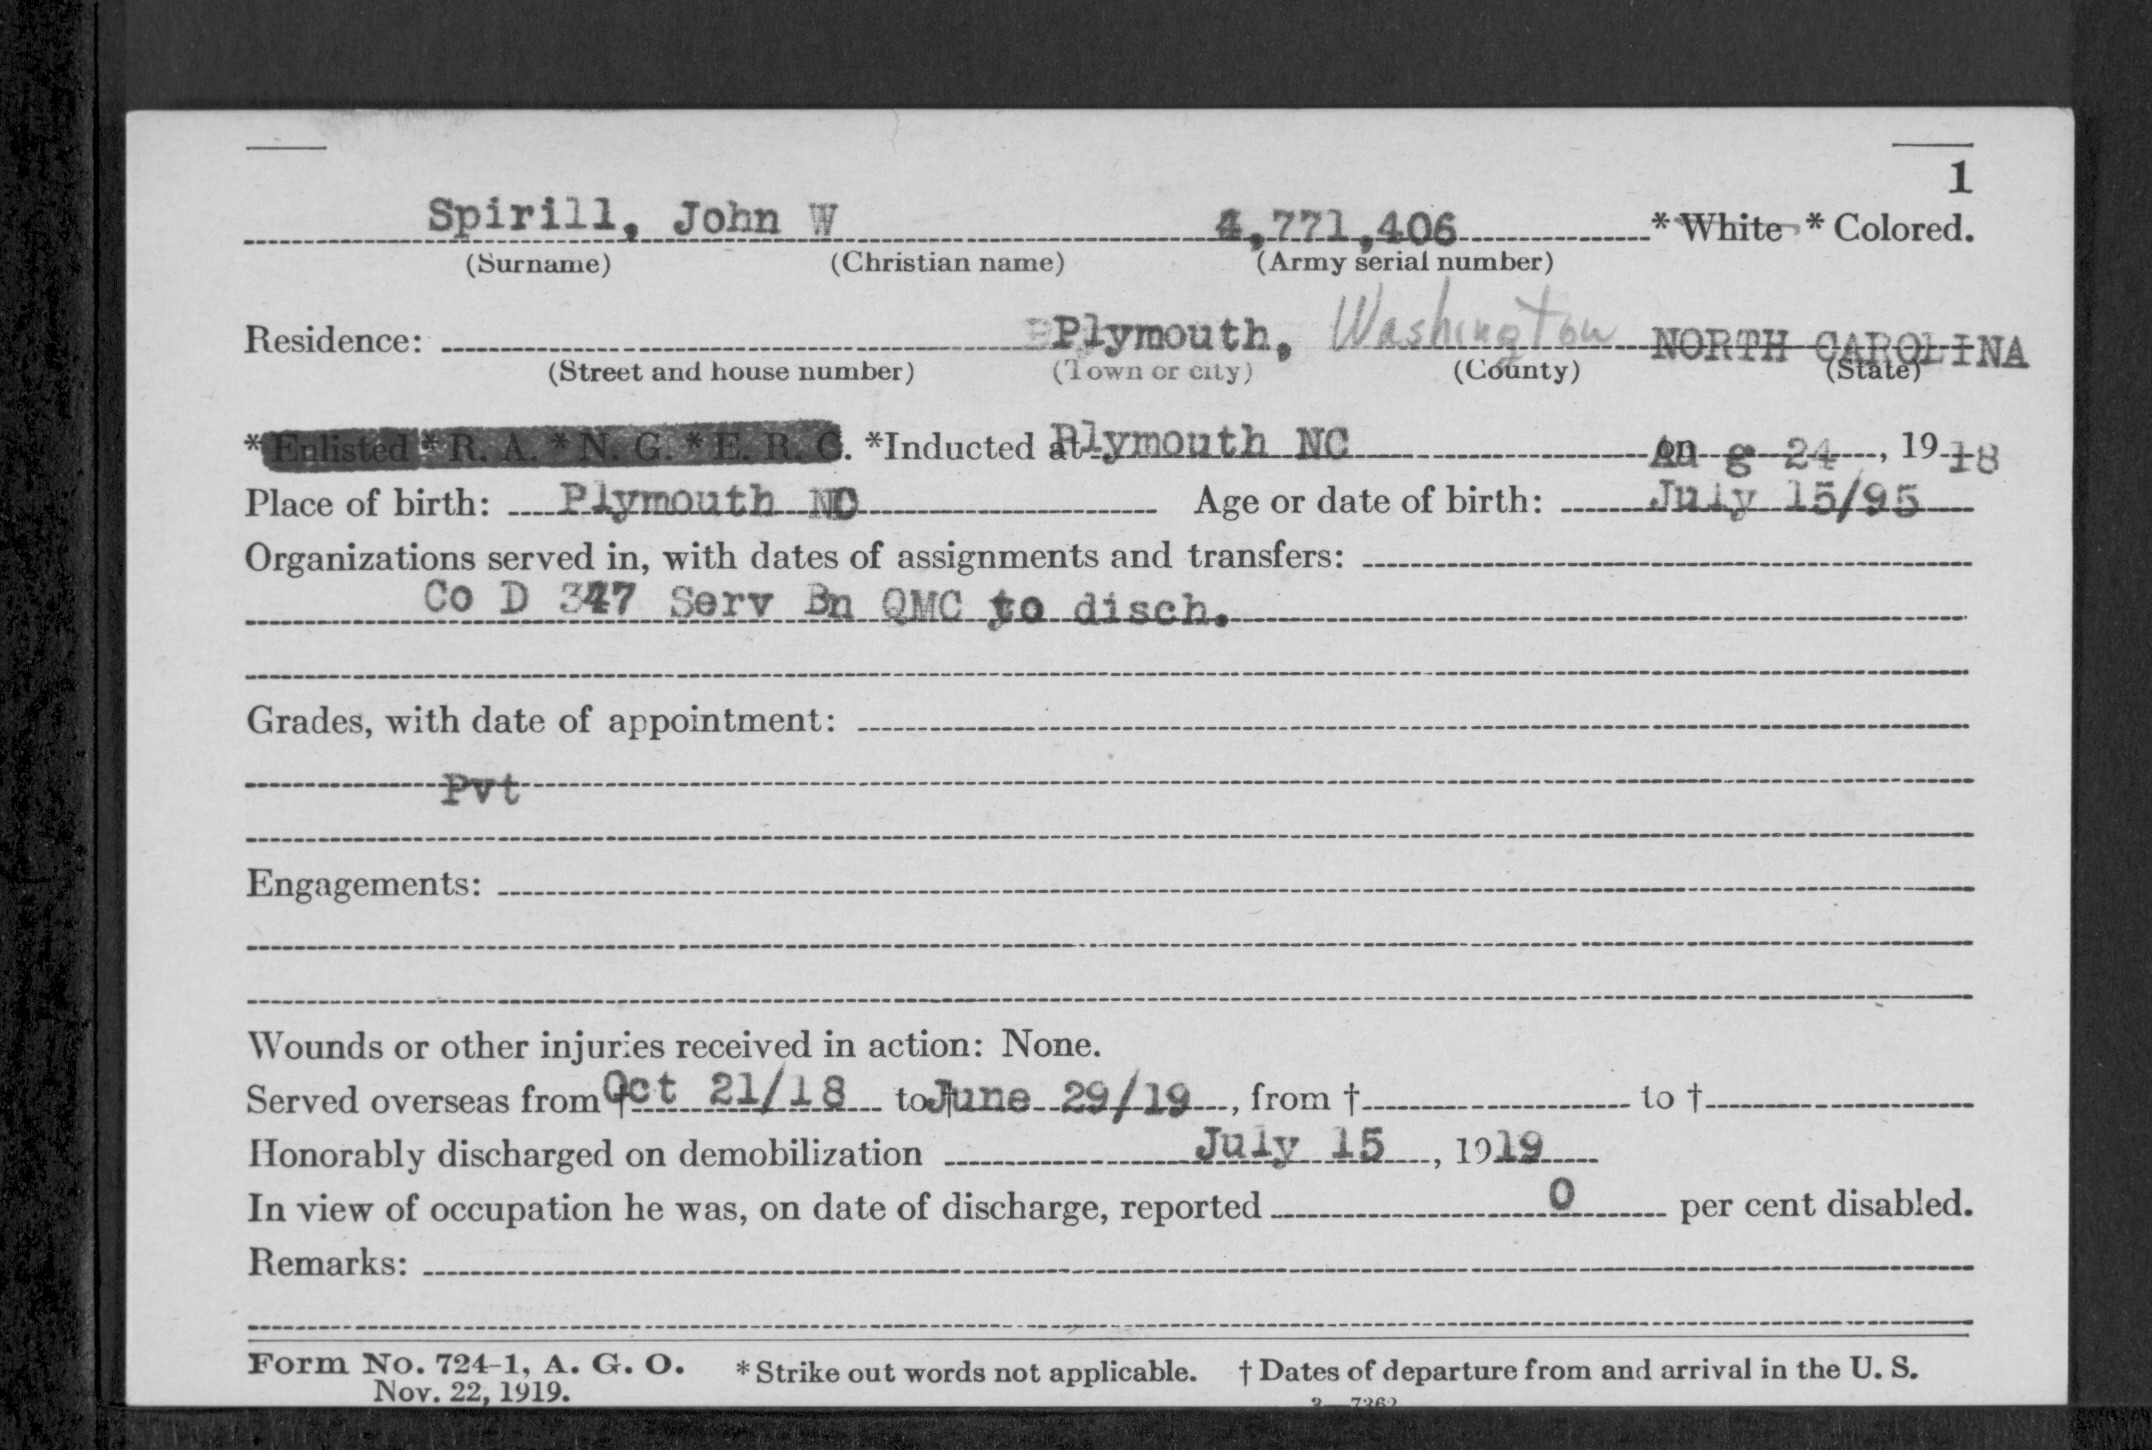 1
Spirill, John W 4,771,406 * White * Colored.
(Surname) (Christian name) (Army serial number)
Residence: Plymouth, Washington NORTH CAROLINA
(Street and house number) (Town or city) (County) (State)
* Enlisted * R. A. * N. G. * E. R. C. *Inducted at Plymouth NC on Au g 24, 19 18
Place of birth: Plymouth NC Age or date of birth: July 15/95
Organizations served in, with dates of assignments and transfers:
Co D 347 Serv Bn QMC to disch.
Grades, with date of appointment:
Pvt
Engagements:
Wounds or other injuries received in action: None.
Served overseas from † Oct 21/18 to † June 29/19, from † to †
Honorably discharged on demobilization July 15, 1919
In view of occupation he was, on date of discharge, reported 0 per cent disabled.
Remarks:
Form No. 724-1, A. G. O. * Strike out words not applicable. † Dates of departure from and arrival in the U. S.
Nov. 22, 1919.